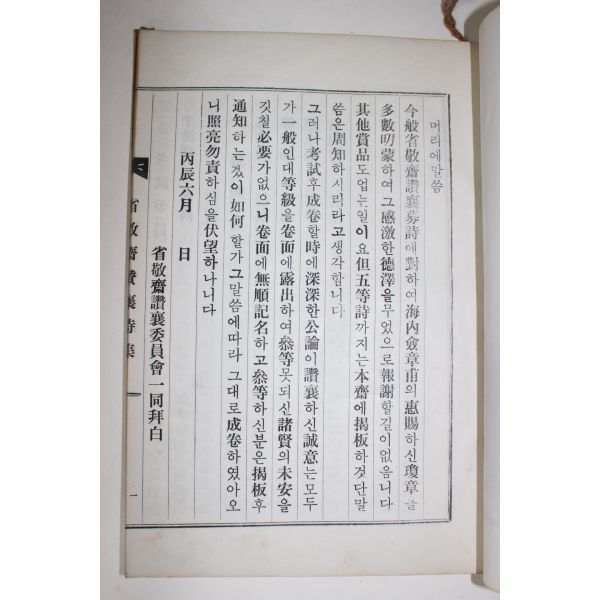 머리에말씀
今般省敬齋讚襄募詩에對하여海內僉章甫의惠賜하신瓊章을
多數叨蒙하여그感激한德澤을무었으로報謝할길이없음니다
其他賞品도업는일이요但五等詩까지는本齋에揭板하것단말
씀은周知하시리라고생각함니다
그러나考試후成卷할時에深深한公論이讚襄하신誠意는모두
가一般인대等級을卷面에露出하여叅等못되신諸賢의未安을
깃칠必要가없으니卷面에無順記名하고叅等하신분은揭板후
通知하는겄이如何할가그말씀에따라그대로成卷하였아오
니照亮勿責하심을伏望하나니다
丙辰六月 日
省敬齋讚襄委員會一同拜白
省敬齋讚襄詩集
一